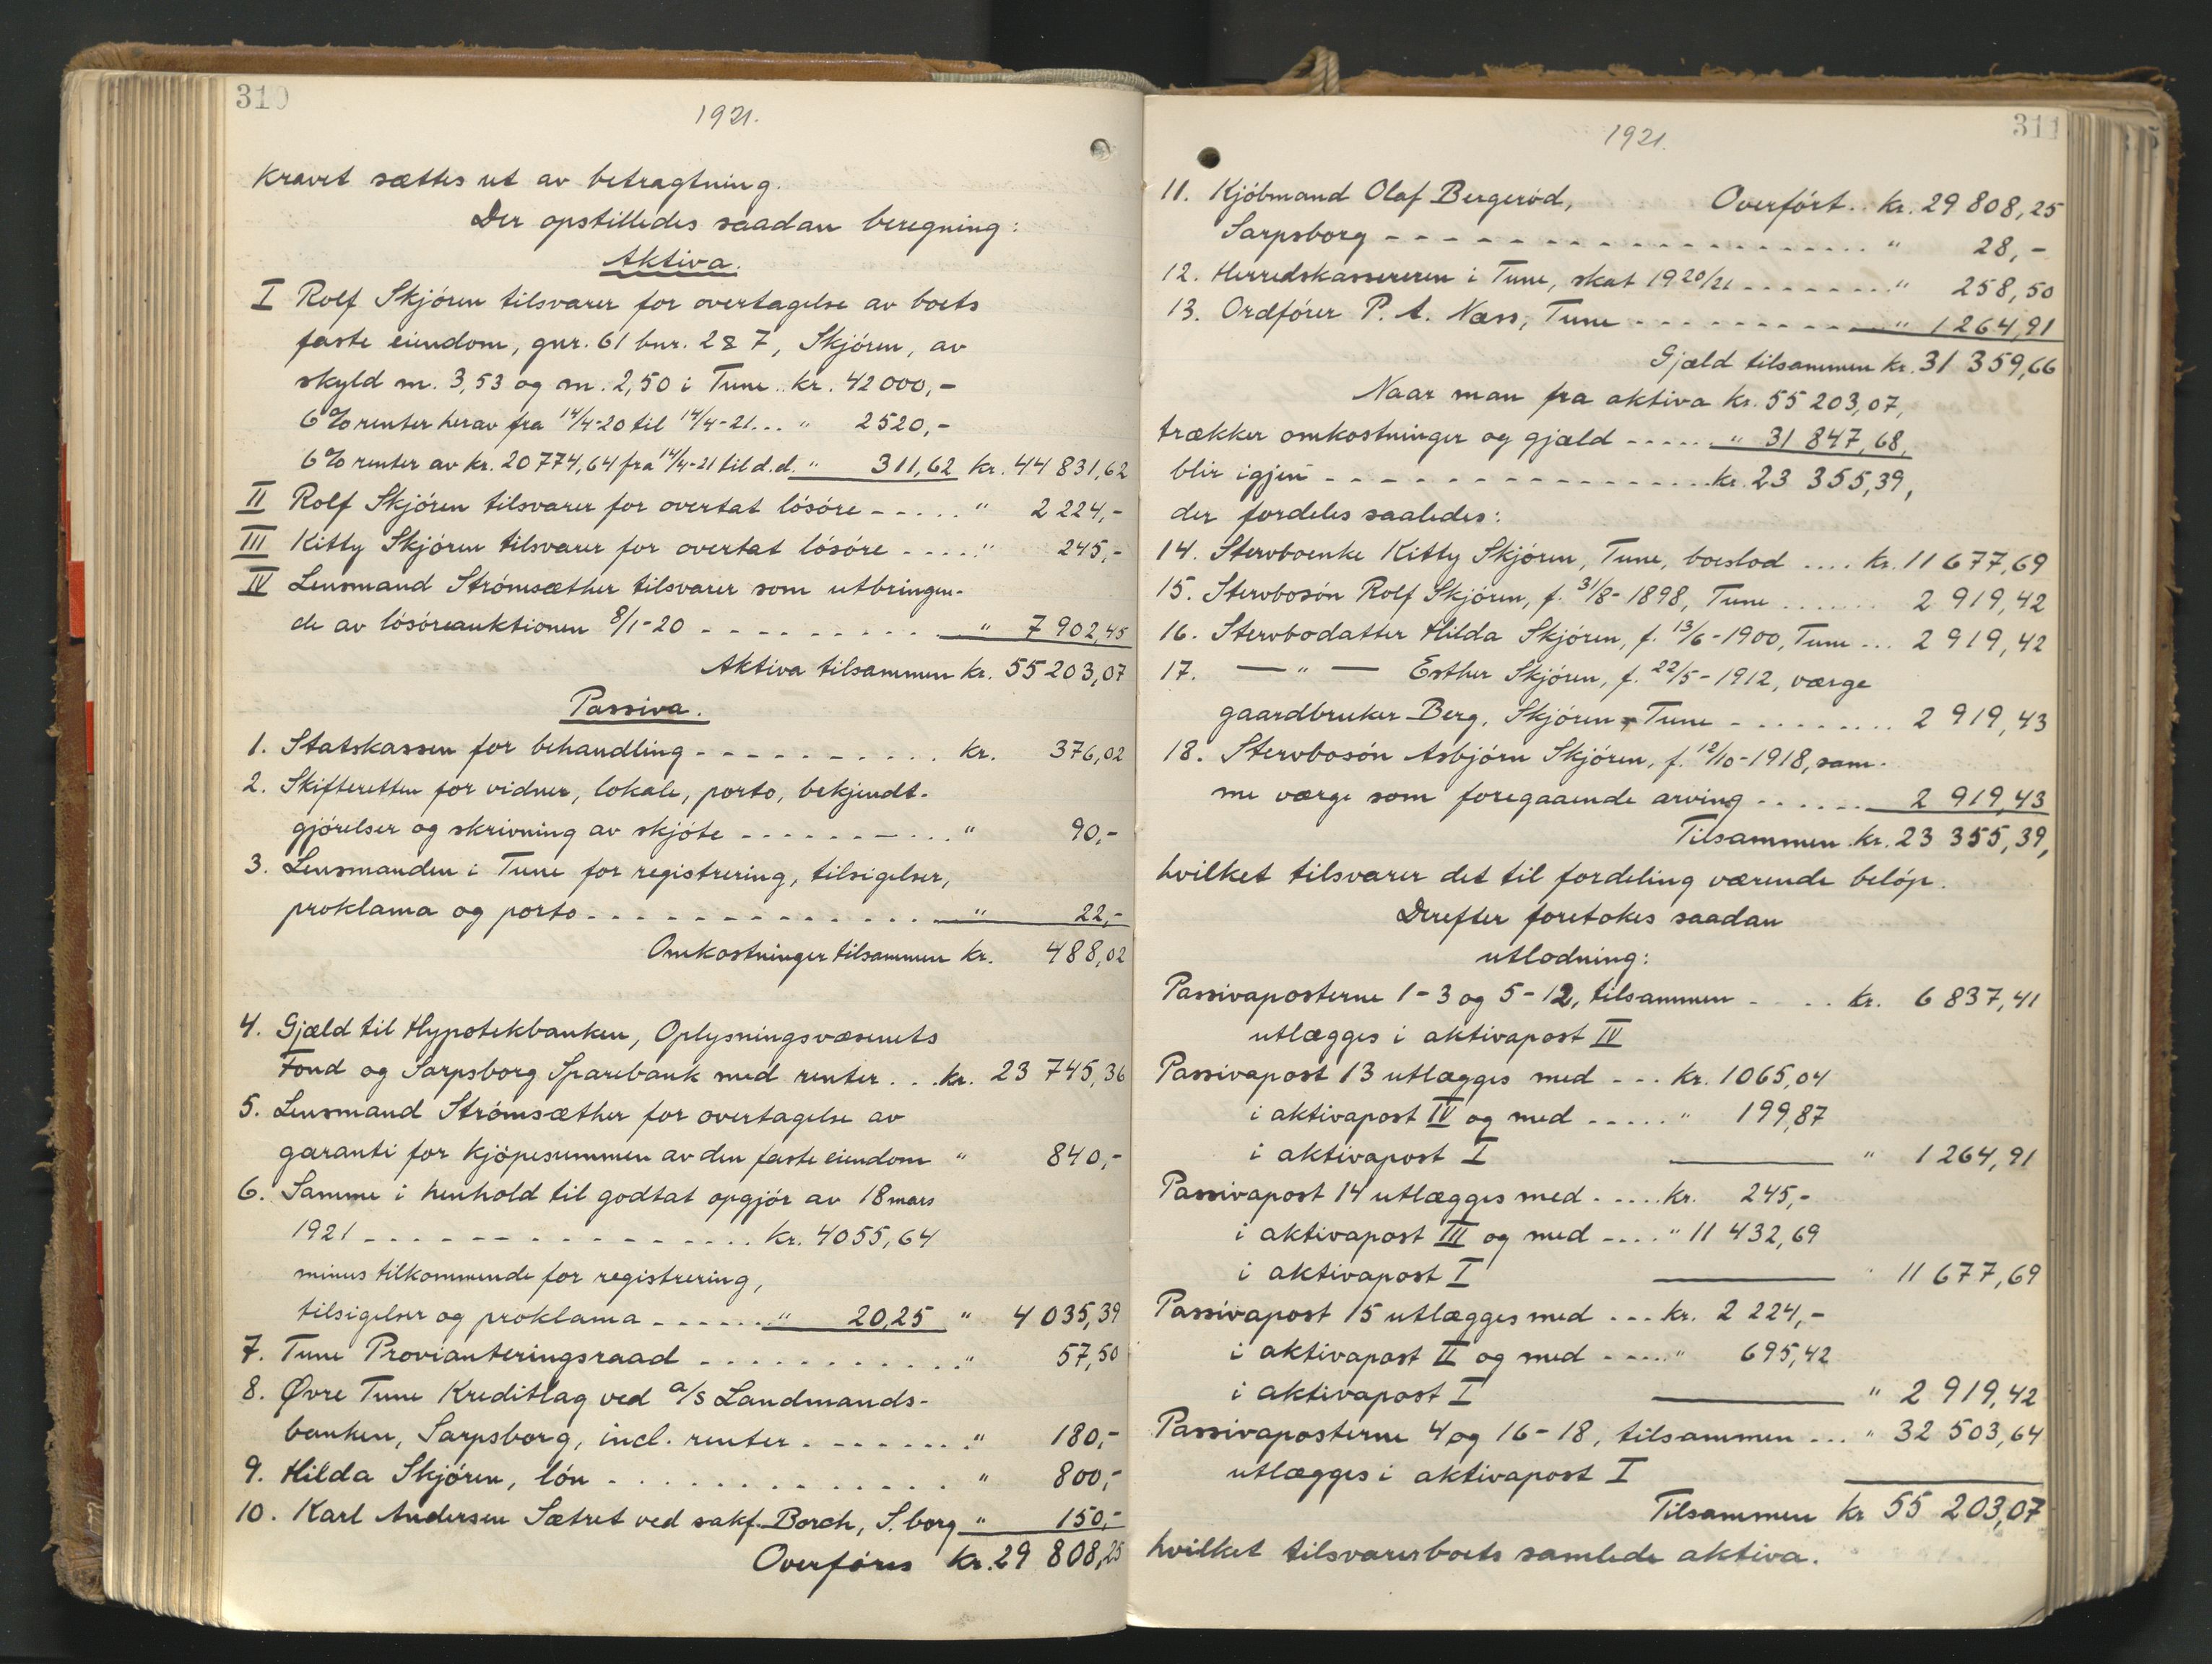 310
1921.
Kravet sættes ut av betragtning.
Der opstilledes saadan beregning:
Aktiva.
I Rolf Skjören tilsvarer for overtagelse av boets
faste eiendom, gnr. 61 bnr. 2 & 7, Skjören, av
skyld m. 3,53 og m. 2,50 i Tune.. kr. 42 000,-
6% renter herav fra 14/4-20 til 14/4-21... " 2520,-
6% renter av kr. 20 774,64 fra 14/4-21 til d.d. " 311,62 kr. 44 831,62
II Rolf Skjören tilsvarer for overtat lösöre - - - . . " 2 224,-
III Kitty Skjören tilsvarer for overtat lösöre - - - . . " 245,-
IV Lensmand Strömsæther tilsvarer som utbringen-
de av lösöreauktionen 8/1-20 - - - - - - - - - . . " 7 902,45
Aktiva tilsammen kr. 55 203,07
Passiva.
1. Statskassen for behandling - - - - - . . . . . kr. 376,02
2. Skifteretten for vidner, lokale, porto, bekjendt-
gjörelser og skrivning av skjöte - - - - - - - . . . " 90,-
3. Lensmanden i Tune for registrering, tilsigelser,
proklama og porto - . . . . . . . . . . . . . " 22,-
Omkostninger tilsammen kr. 488,02
4. Gjæld til Hypotekbanken, Oplysningsvæsenets
Fond og Sarpsborg Sparebank med renter . . . kr. 23 745,36
5. Lensmand Strömsæther for overtagelse av
garanti for kjöpesummen av den faste eiendom " 840,-
6. Samme i henhold til godtat opgjör av 18 mars
1921 - - - - - - - - - - - . . . . kr. 4055,64
minus tilkommende for registrering,
tilsigelser og proklama - - - - - . . " 20,25 " 4 035,39
7. Tune Provianteringsraad - . . . . . . . . . . " 57,50
8. Øvre Tune Kreditlag ved a/s Landmands-
banken, Sarpsborg, incl. renter . - - - . . . . " 180,-
9. Hilda Skjören, lön - . . . . . . . . . . . . " 800,-
10. Karl Andersen Sætret ved sakf. Borch, S.borg " 150,-
Overföres kr. 29 808,25
311
1921.
Overfört.. kr. 29 808,25
11. Kjöbmand Olaf Bergeröd,
Sarpsborg - - - - - - - - - - - - - . . . . . . . " 28,-
12. Herredskassereren i Tune, skat 1920/21 - - - - . . . " 258,50
13. Ordförer P. A. Næss, Tune - - - - - - - - - - " 1 264,91
Gjæld tilsammen kr. 31 359,66
Naar man fra aktiva kr. 55 203,07,
trækker omkostninger og gjæld - - - . . . " 31 847,68,
blir igjen - - - - - - - - - - - - - - . . . . kr. 23 355,39,
der fordeles saaledes:
14. Stervboenke Kitty Skjören, Tune, boeslod .... kr. 11 677,69
15. Stervbosön Rolf Skjören, f. 31/8-1898, Tune . . . . . . . 2 919,42
16. Stervbodatter Hilda Skjören, f. 13/6-1900, Tune ... 2 919,42
17. — " — Esther Skjören, f. 22/5-1912, værge
gaardbruker Berg. Skjören, Tune - . . . . . . . . . 2 919,43
18. Stervbosön Asbjörn Skjören, f. 12/10-1918, sam-
me værge som foregaaende arving - . . . . . . 2 919,43
Tilsammen kr. 23 355,39,
hvilket tilsvarer det til fordeling værende belöp.
Derefter foretokes saadan
utlodning:
Passivaposterne 1-3 og 5-12, tilsammen - . . . . kr. 6 837,41
utlægges i aktivapost IV
Passivapost 13 utlægges med - - . kr. 1065,04
i aktivapost IV og med - - . . . " 199,87
i aktivapost I " 1 264,91
Passivapost 14 utlægges med - . . . . kr. 245,-
i aktivapost III og med - . . . " 11 432,69
i aktivapost I " 11 677,69
Passivapost 15 utlægges med - . . kr. 2 224,-
i aktivapost II og med - - - . . " 695,42
i aktivapost I " 2 919,42
Passivaposterne 4 og 16-18, tilsammen - . . " 32 503,64
utlægges i aktivapost I
Tilsammen kr 55 203,07
hvilket tilsvarer boets samlede aktiva.